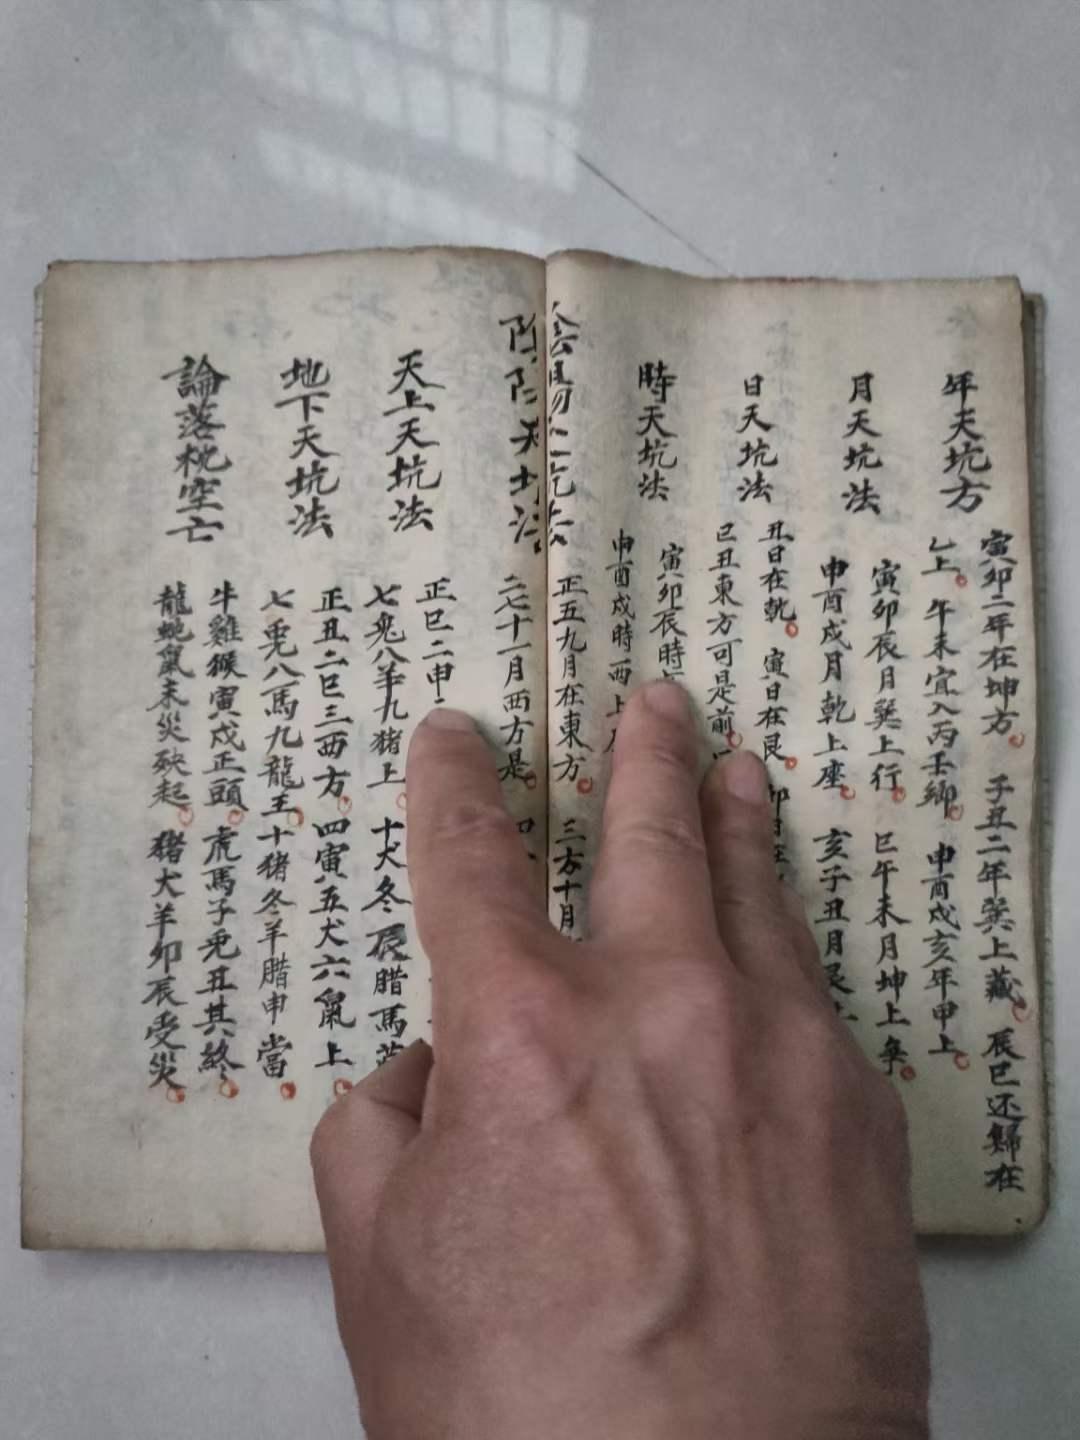 年天坑方
寅卯二年在坤方 子丑二年巽上藏 辰巳还歸在
乙上 午未宜入丙壬鄉 申酉戌亥年甲上
月天坑法
寅卯辰月巽上行 巳午未月坤上
申酉戌月乾上座 亥子丑月艮
日天坑法
丑日在乾 寅日在艮
巳丑東方可是前
時天坑法
寅卯辰時
申酉戌時西上
陰陽天坑法
正五九月在東方 三方十月
二七十一月西方是
天上天坑法
正巳二申
七兔八羊九猪上 十犬冬辰腊馬
地下天坑法
正丑二巳三西方 四寅五犬六鼠上
七兎八馬九龍王 十猪冬羊腊申當
論落枕空亡
牛雞猴寅戌正頭 虎馬子兎丑其終
龍蛇鼠未災殃起 猪犬羊卯辰受災